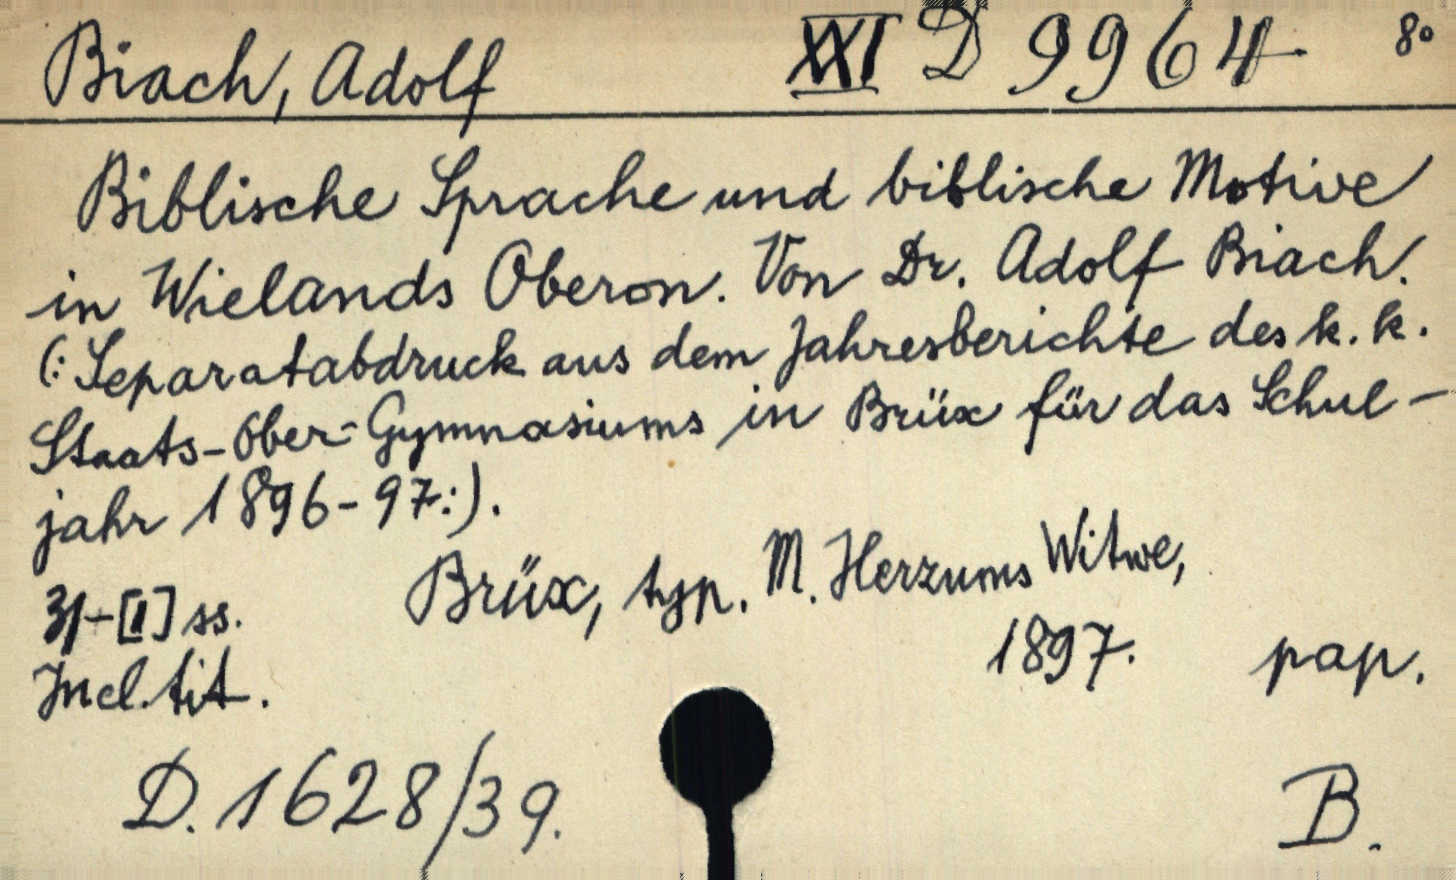 Biach, Adolf
XXI D 9964 8°
Biblische Sprache und biblische Motive
in Wielands Oberon. Von Dr. Adolf Biach.
(: Separatabdruck aus dem Jahresberichte des k. k.
Staats-Ober-Gymnasiums in Brüx für das Schul-
jahr 1896-97:).
Brüx, typ. M. Herzums Witwe,
31-[1] ss.
1897. pap.
Incl. tit.
D. 1628/39.
B.